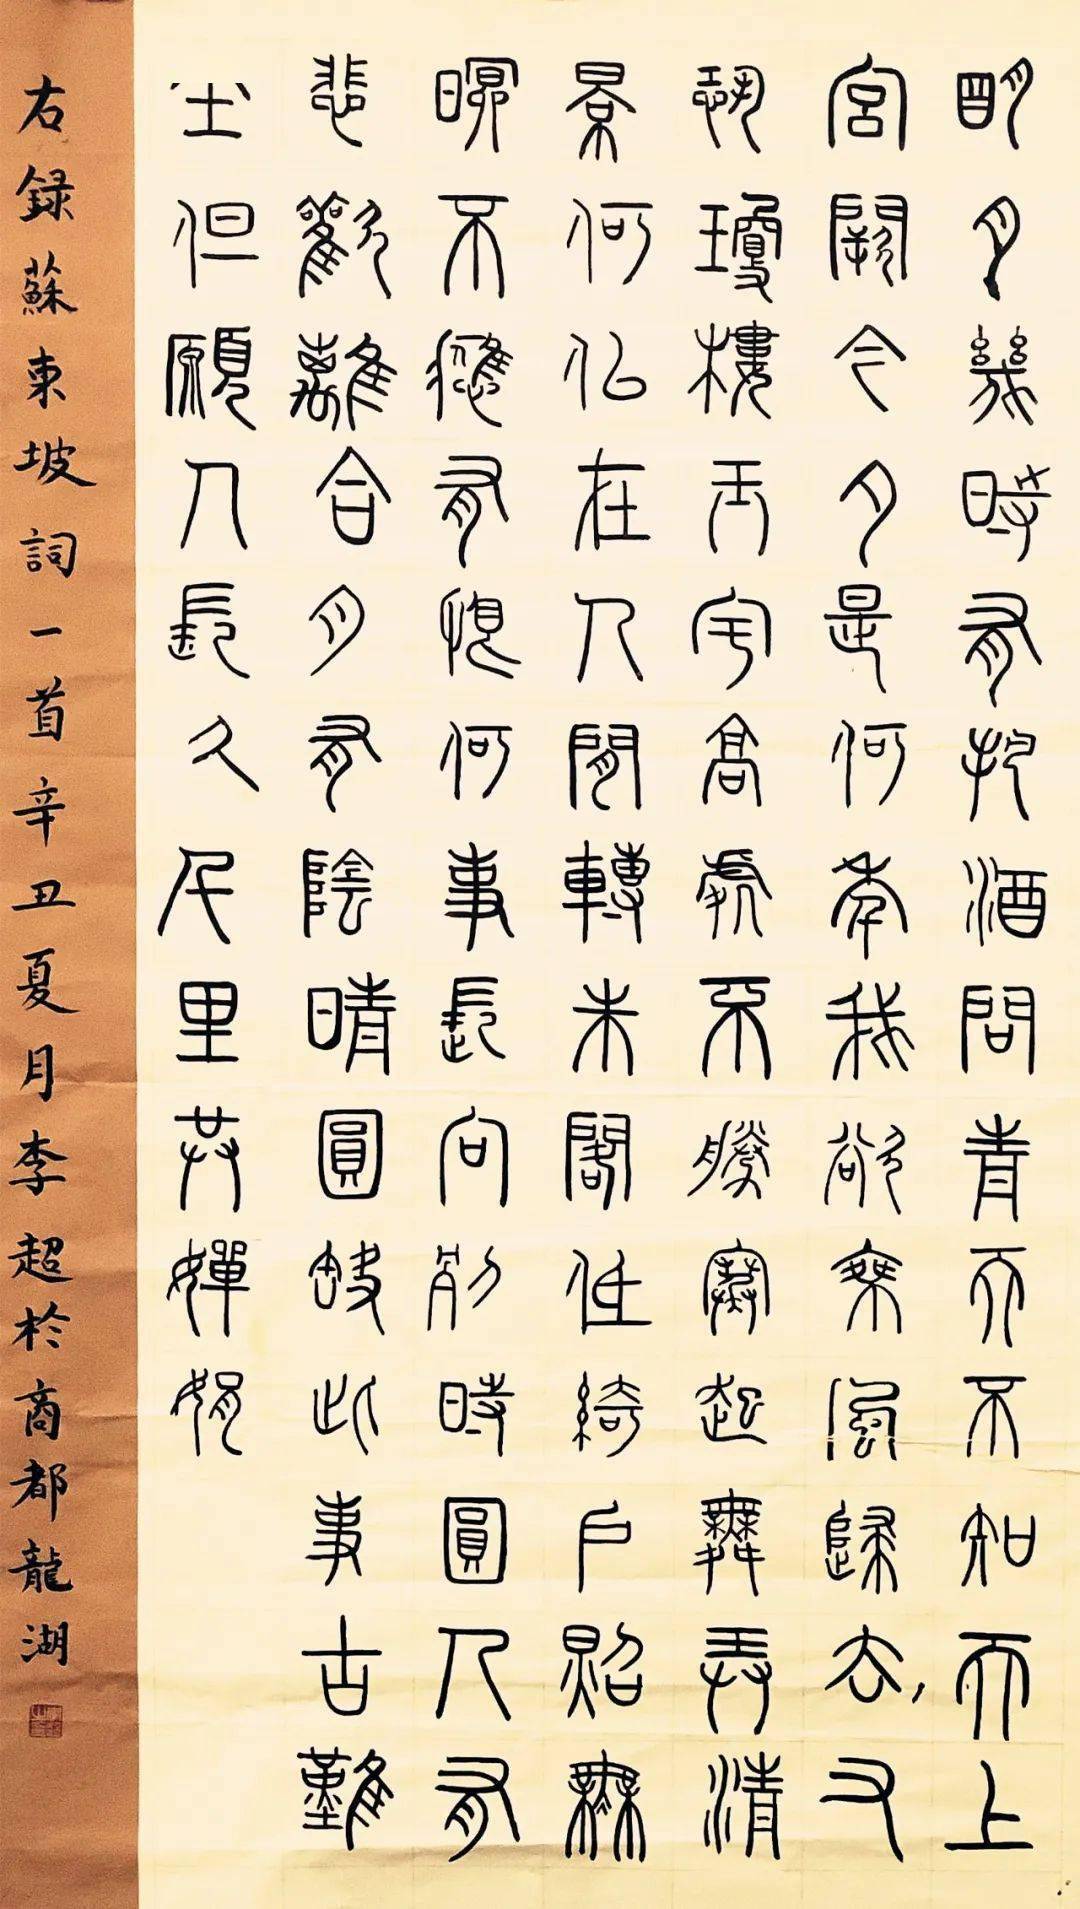 明月幾時有把酒問青天不知天上
宮闕今夕是何年我欲乘風歸去又
恐瓊樓玉宇高處不勝寒起舞弄清
景何似在人間轉朱閣低綺戶照無
眠不應有恨何事長向別時圓人有
悲歡離合月有陰晴圓缺此事古難
全但願人長久千里共嬋娟
右錄蘇東坡詞一首辛丑夏月李超於商都龍湖